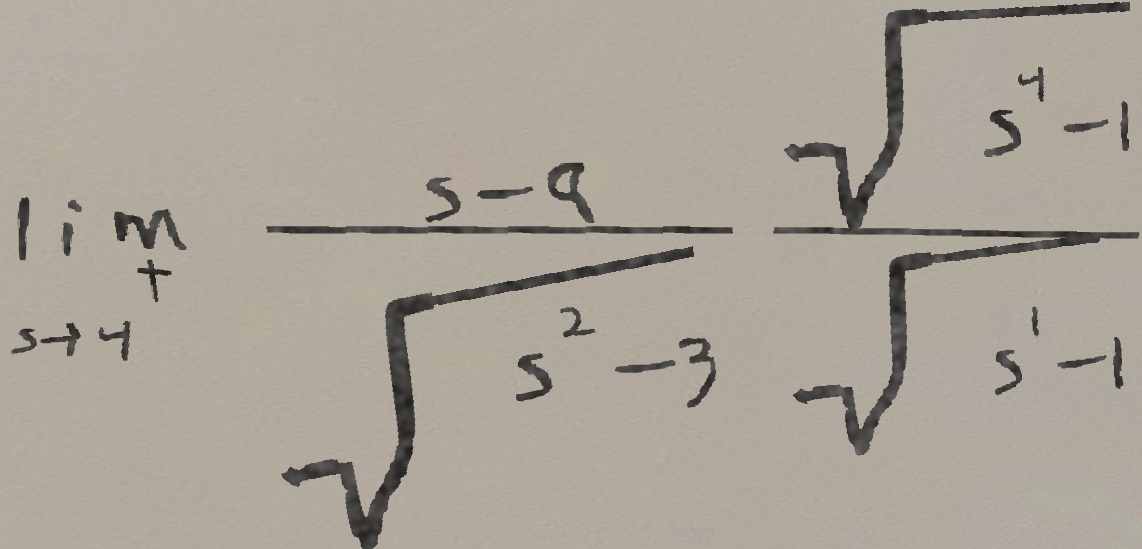 \lim_{s \to 4^+} \frac{s-9}{\sqrt{s^2-3}} \frac{\sqrt{s^4-1}}{\sqrt{s^1-1}}